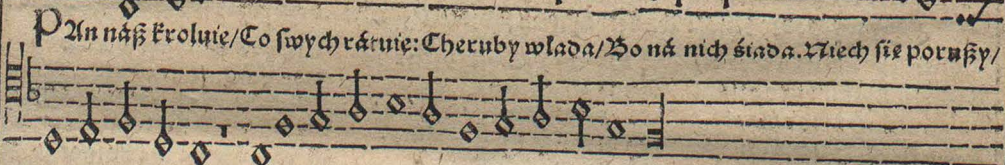 PAn náß kroluie/Co swych rátuie: Cheruby wlada/Bo ná nich śiada. Niech się porußy/